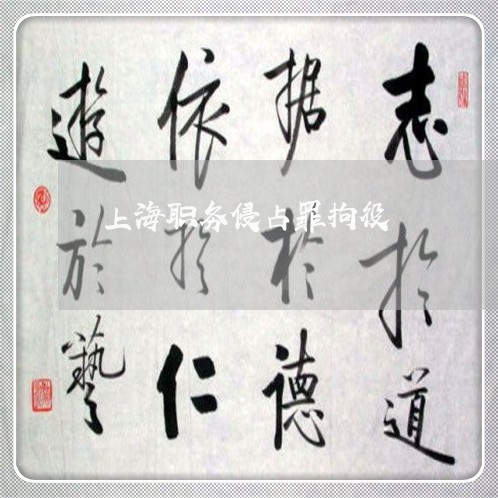 志於道
据於德
依於仁
遊於藝
上海职务侵占罪拘役